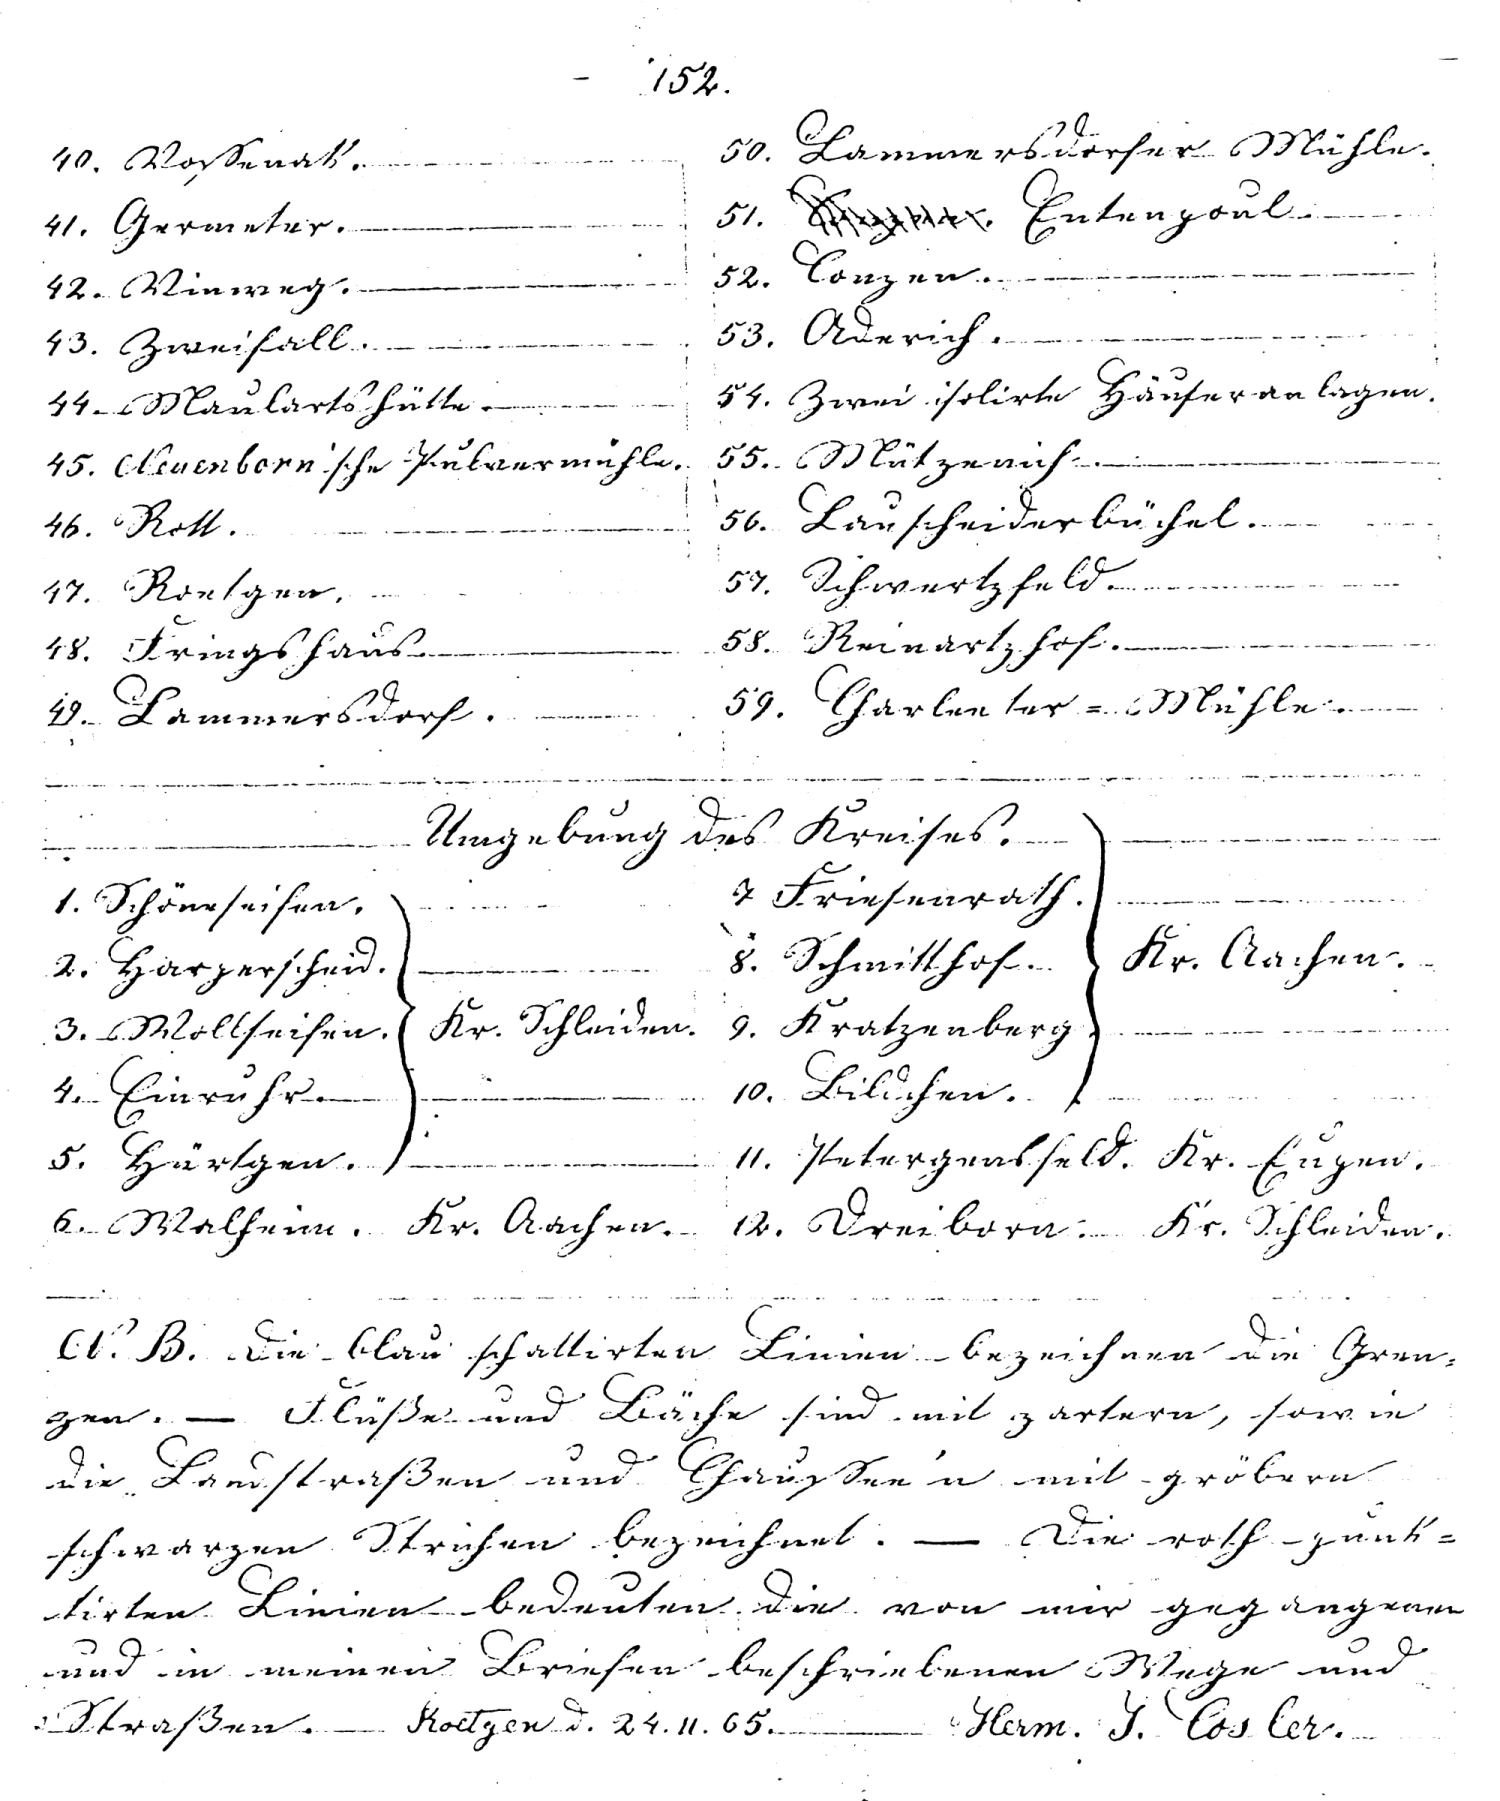 152.
40. Vossenak.
41. Germeter.
42. Vinweg.
43. Zweifall.
44. Maulartshütte.
45. Neuenborn'sche Pulvermühle.
46. Rott.
47. Roetgen.
48. Fringshaus.
49. Lammersdorf.
50. Lammersdorfer Mühle.
51. Entenpoul.
52. Conzen.
53. Aderich.
54. Zwei isolirte Häuseranlagen.
55. Mützenich.
56. Lauscheiderbüchel.
57. Schwertzfeld.
58. Reinartzhof.
59. Charlenter=Mühle.
Umgebung des Kreises.
1. Schöneseifen.
2. Harperscheid.
3. Wollseifen. Kr. Schleiden.
4. Einruhr.
5. Hürtgen.
6. Walheim. Kr. Aachen.
7 Friesenrath.
8. Schmitthof. Kr. Aachen.
9. Kratzenberg
10. Bildchen.
11. Petergensfeld. Kr. Eupen.
12. Dreiborn. Kr. Schleiden.
N. B. Die blau schattirten Linien bezeichnen die Gren=
zen. — Flüße und Bäche sind mit zartern, sowie
die Landstraßen und Chausseen mit gröbern
schwarzen Strichen bezeichnet. — Die roth punk=
tirten Linien bedeuten die von mir gegangenen
und in meinen Briefen beschriebenen Wege und
Straßen. — Roetgen d. 24.11.65. Herm. J. Cosler.